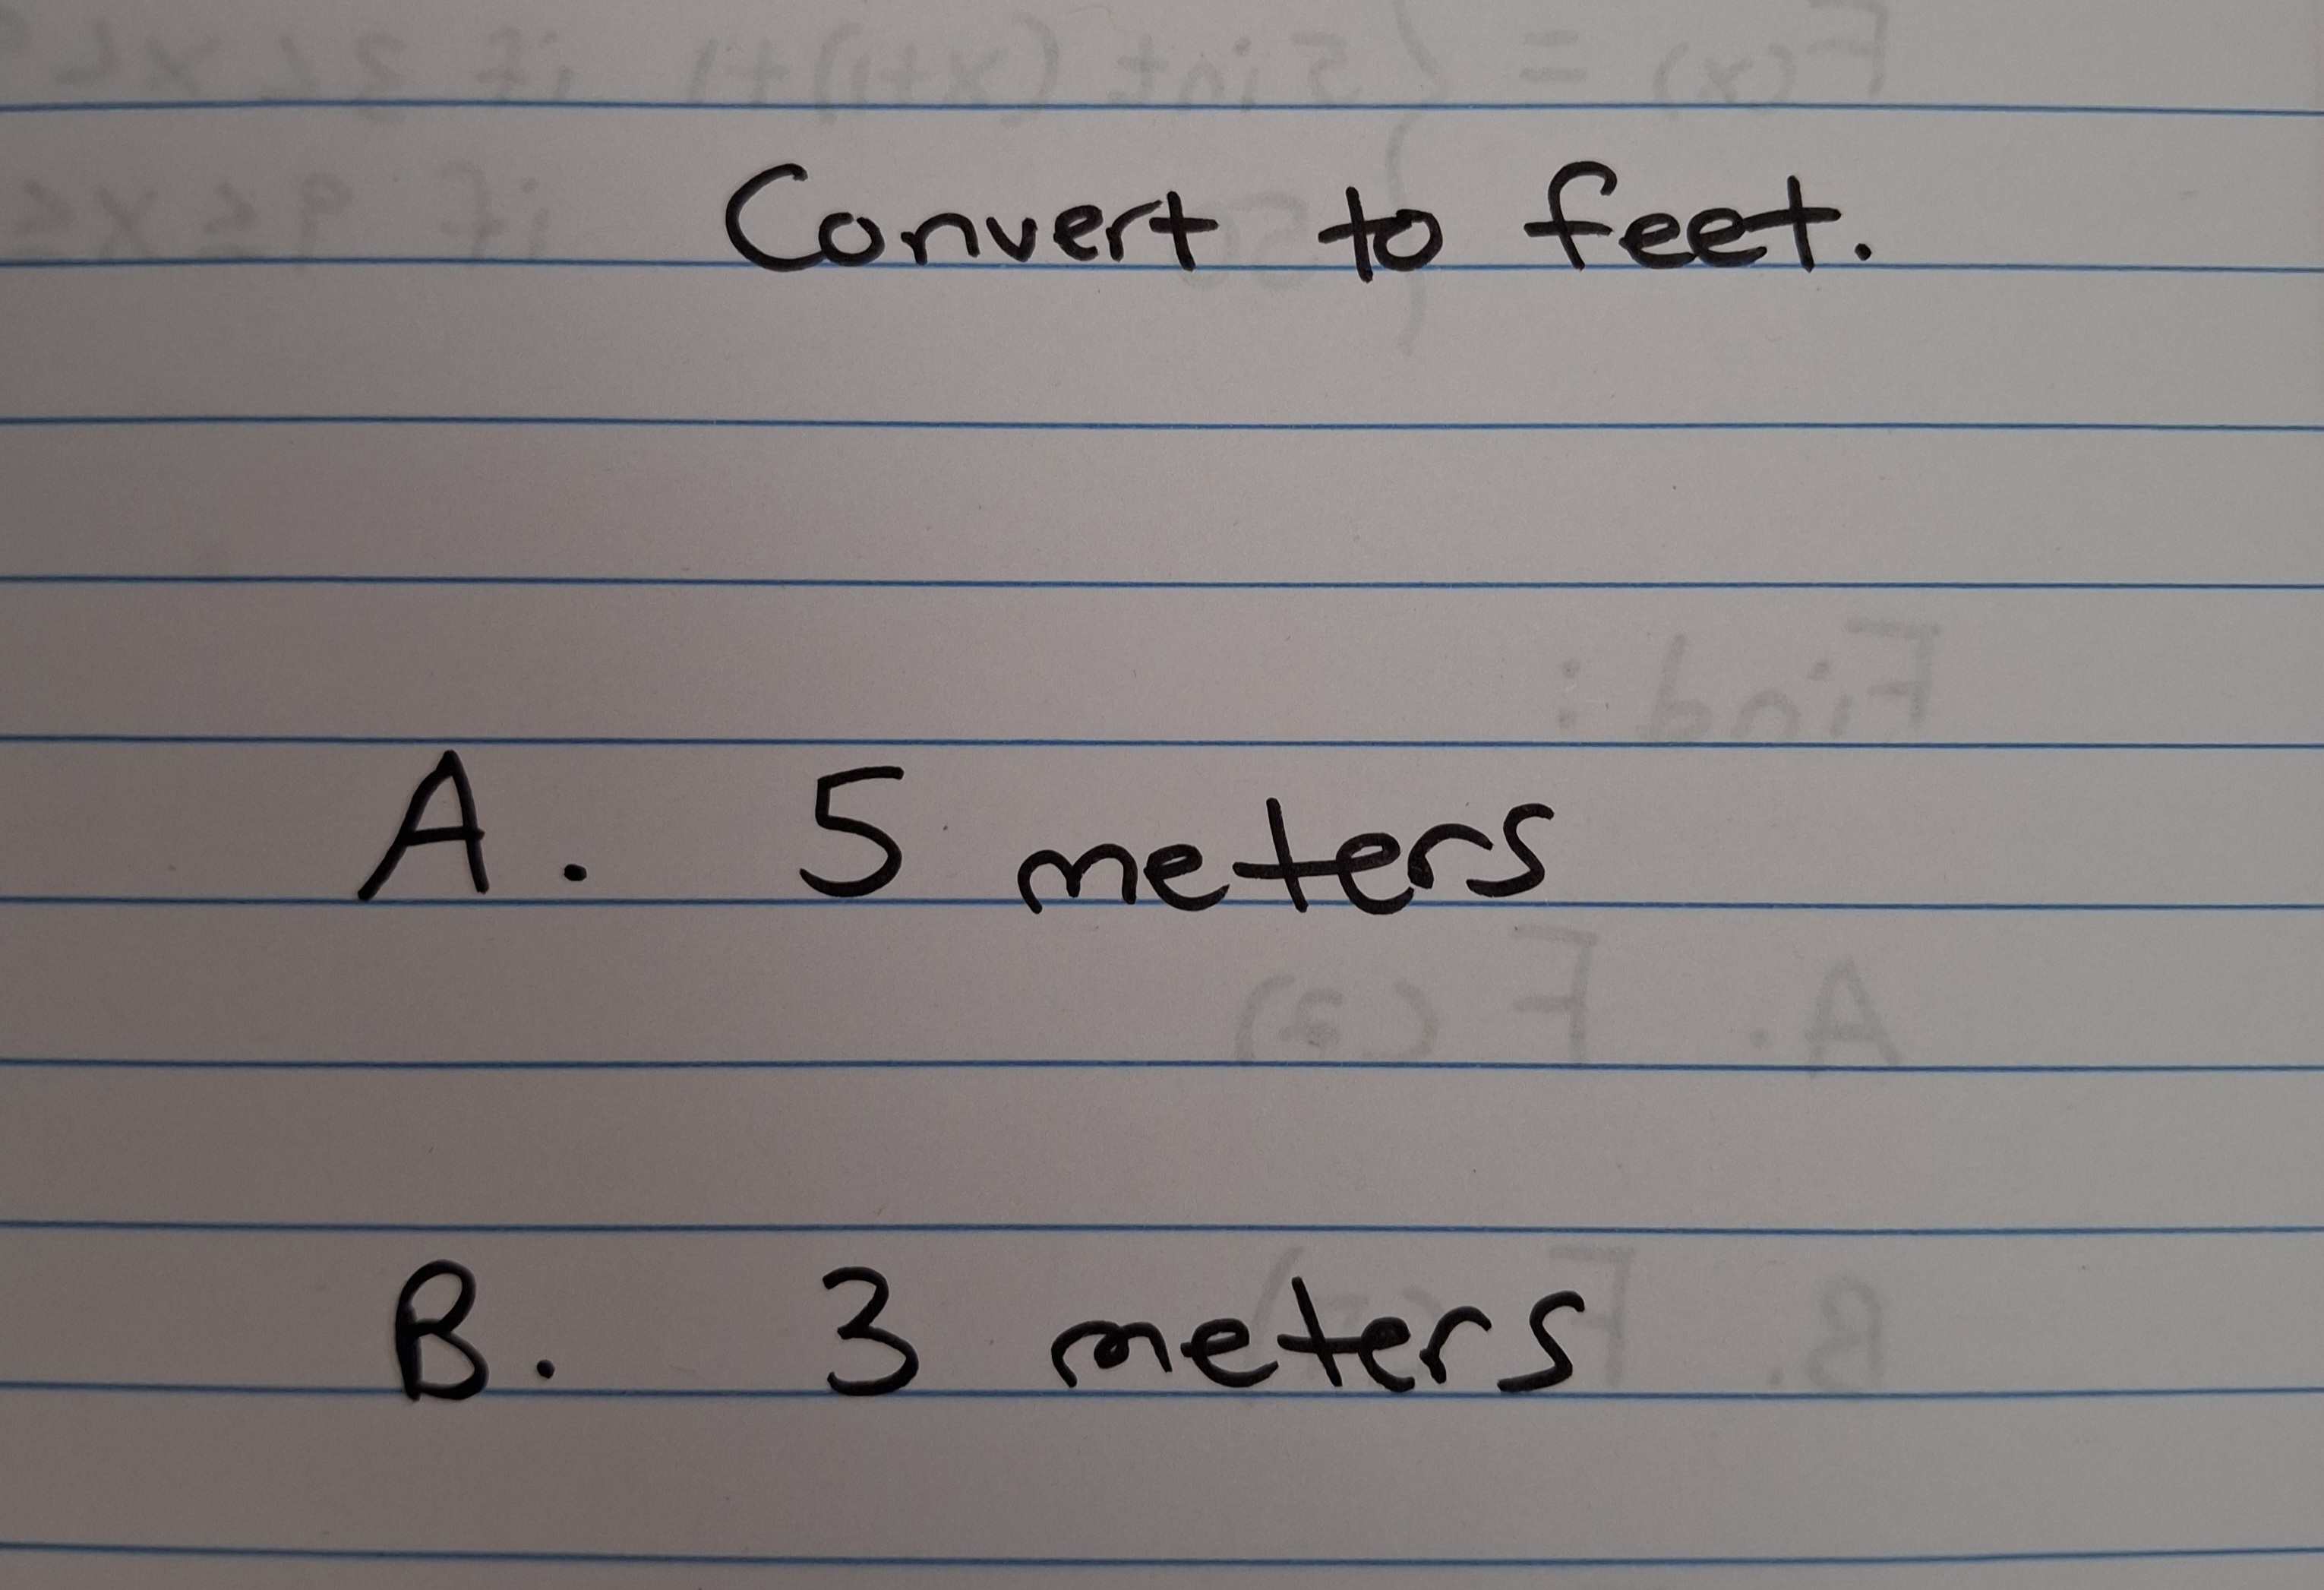 Convert to feet.
A. 5 meters
B. 3 meters